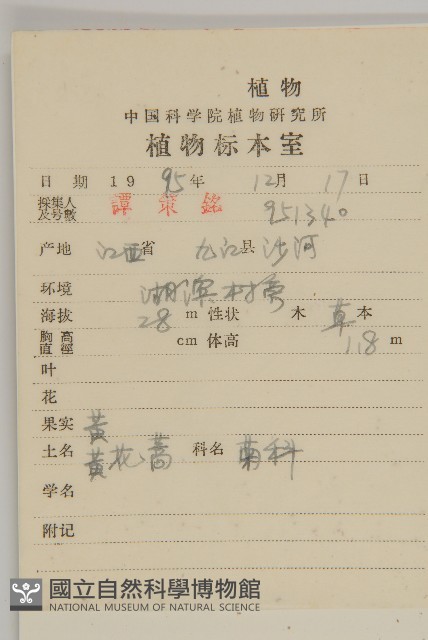 植物
中国科学院植物研究所
植物标本室
日期 1995年 12月 17日
採集人及号數 譚策銘 951340
产地 江西省 九江县 沙河
环境 湖滨村旁
海拔 28 m 性状 木 草本
胸高直徑 cm 体高 1.8 m
叶
花
果实 黃
土名 黃花蒿 科名 菊科
学名
附记
國立自然科學博物館
NATIONAL MUSEUM OF NATURAL SCIENCE